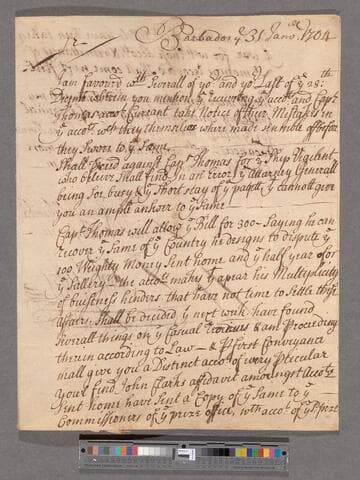 Barbados ye 31 Janry 1704
Sr
I am favour'd wth severall of yor and yor Last of ye 28th
wherein you mention ye Receiving ye accots and Capt
Thomas accot Currant take Notice of Mistakes in
ye accots wch they themselves where made sensible of before
they swore to ye same.
Shall proceed against Capt Thomas for ye ship Vigilent
who believe shall find in an Error ye Attorney Generall
being soe buecy & ye Short stay of ye pacqtt yt cannott give
you an ample answer to ye same.
Capt Thomas will allow ye Bill for 300- Saying he can
recover ye same of ye Country he designs to dispute ye
100 Weighty Mony sent home and ye half year of
ye Sallery the accot makes ye apear his Multiplicity
of buisness hinders that have not time to Settle this
affaires, Shall be decided ye next week have found
severall things on ye Casual & am proceeding
therein according to Law - & Pr first Conveyance
shall give you a Distinct accot of every pticular
Your find John Clarks affidavit amongst accots
sent home have sent a Copy of ye Same to ye
Commissioners of ye prize office, wth accot of ye